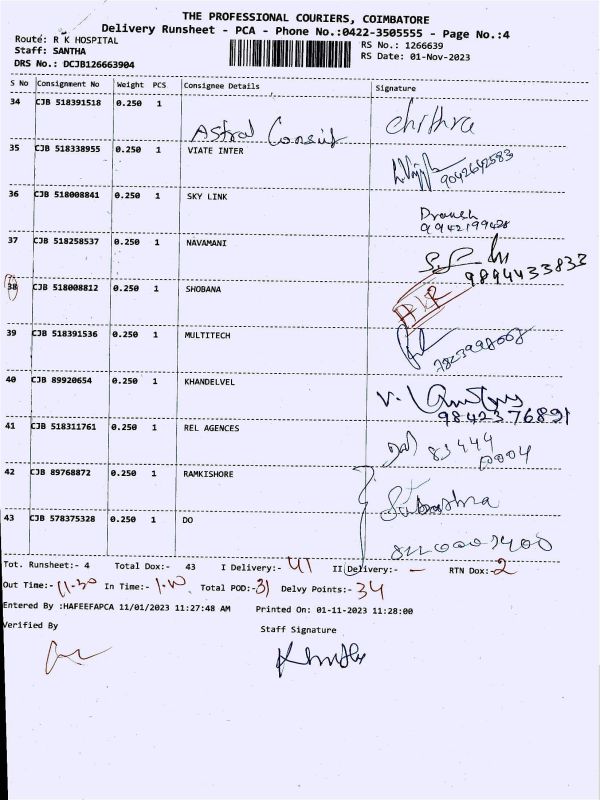 THE PROFESSIONAL COURIERS, COIMBATORE
Delivery Runsheet - PCA - Phone No.:0422-3505555 - Page No.:4
Route: R K HOSPITAL
RS No.: 1266639
Staff: SANTHA
RS Date: 01-Nov-2023
DRS No.: DCJB126663904
S No Consignment No Weight PCS Consignee Details Signature
34 CJB 518391518 0.250 1 Astral Consult Chithra
35 CJB 518338955 0.250 1 VIATE INTER
9042642583
36 CJB 518008841 0.250 1 SKY LINK
9942199428
37 CJB 518258537 0.250 1 NAVAMANI
9894433833
38 CJB 518008812 0.250 1 SHOBANA
39 CJB 518391536 0.250 1 MULTITECH
40 CJB 89920654 0.250 1 KHANDELVEL
9842376891
41 CJB 518311761 0.250 1 REL AGENCES
81444
0004
42 CJB 89768872 0.250 1 RAMKISHORE
43 CJB 578375328 0.250 1 DO
Tot. Runsheet:- 4 Total Dox:- 43 I Delivery:- 41 II Delivery:- - RTN Dox:-2
Out Time:- 11-30 In Time:- Total POD:-31 Delvy Points:-34
Entered By :HAFEEFAPCA 11/01/2023 11:27:48 AM Printed On: 01-11-2023 11:28:00
Verified By Staff Signature